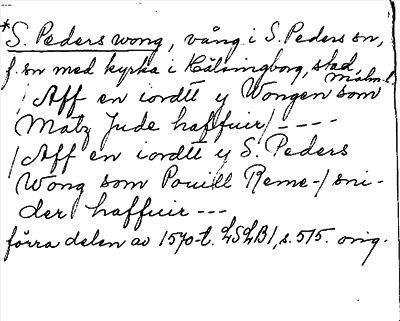 *S. Peders wong, vång i S. Peders sn,
f. sn med kyrka i Hälsingborg, stad,
Malm. l.
/Aff en iordtt y Wongen som
Matz Jude haffuir/ ----
/Aff en iordtt y S. Peders
Wong som Pouill Reme-/sni-
der haffuir ---
förra delen av 1570-t. LSLB1, s. 515. orig.